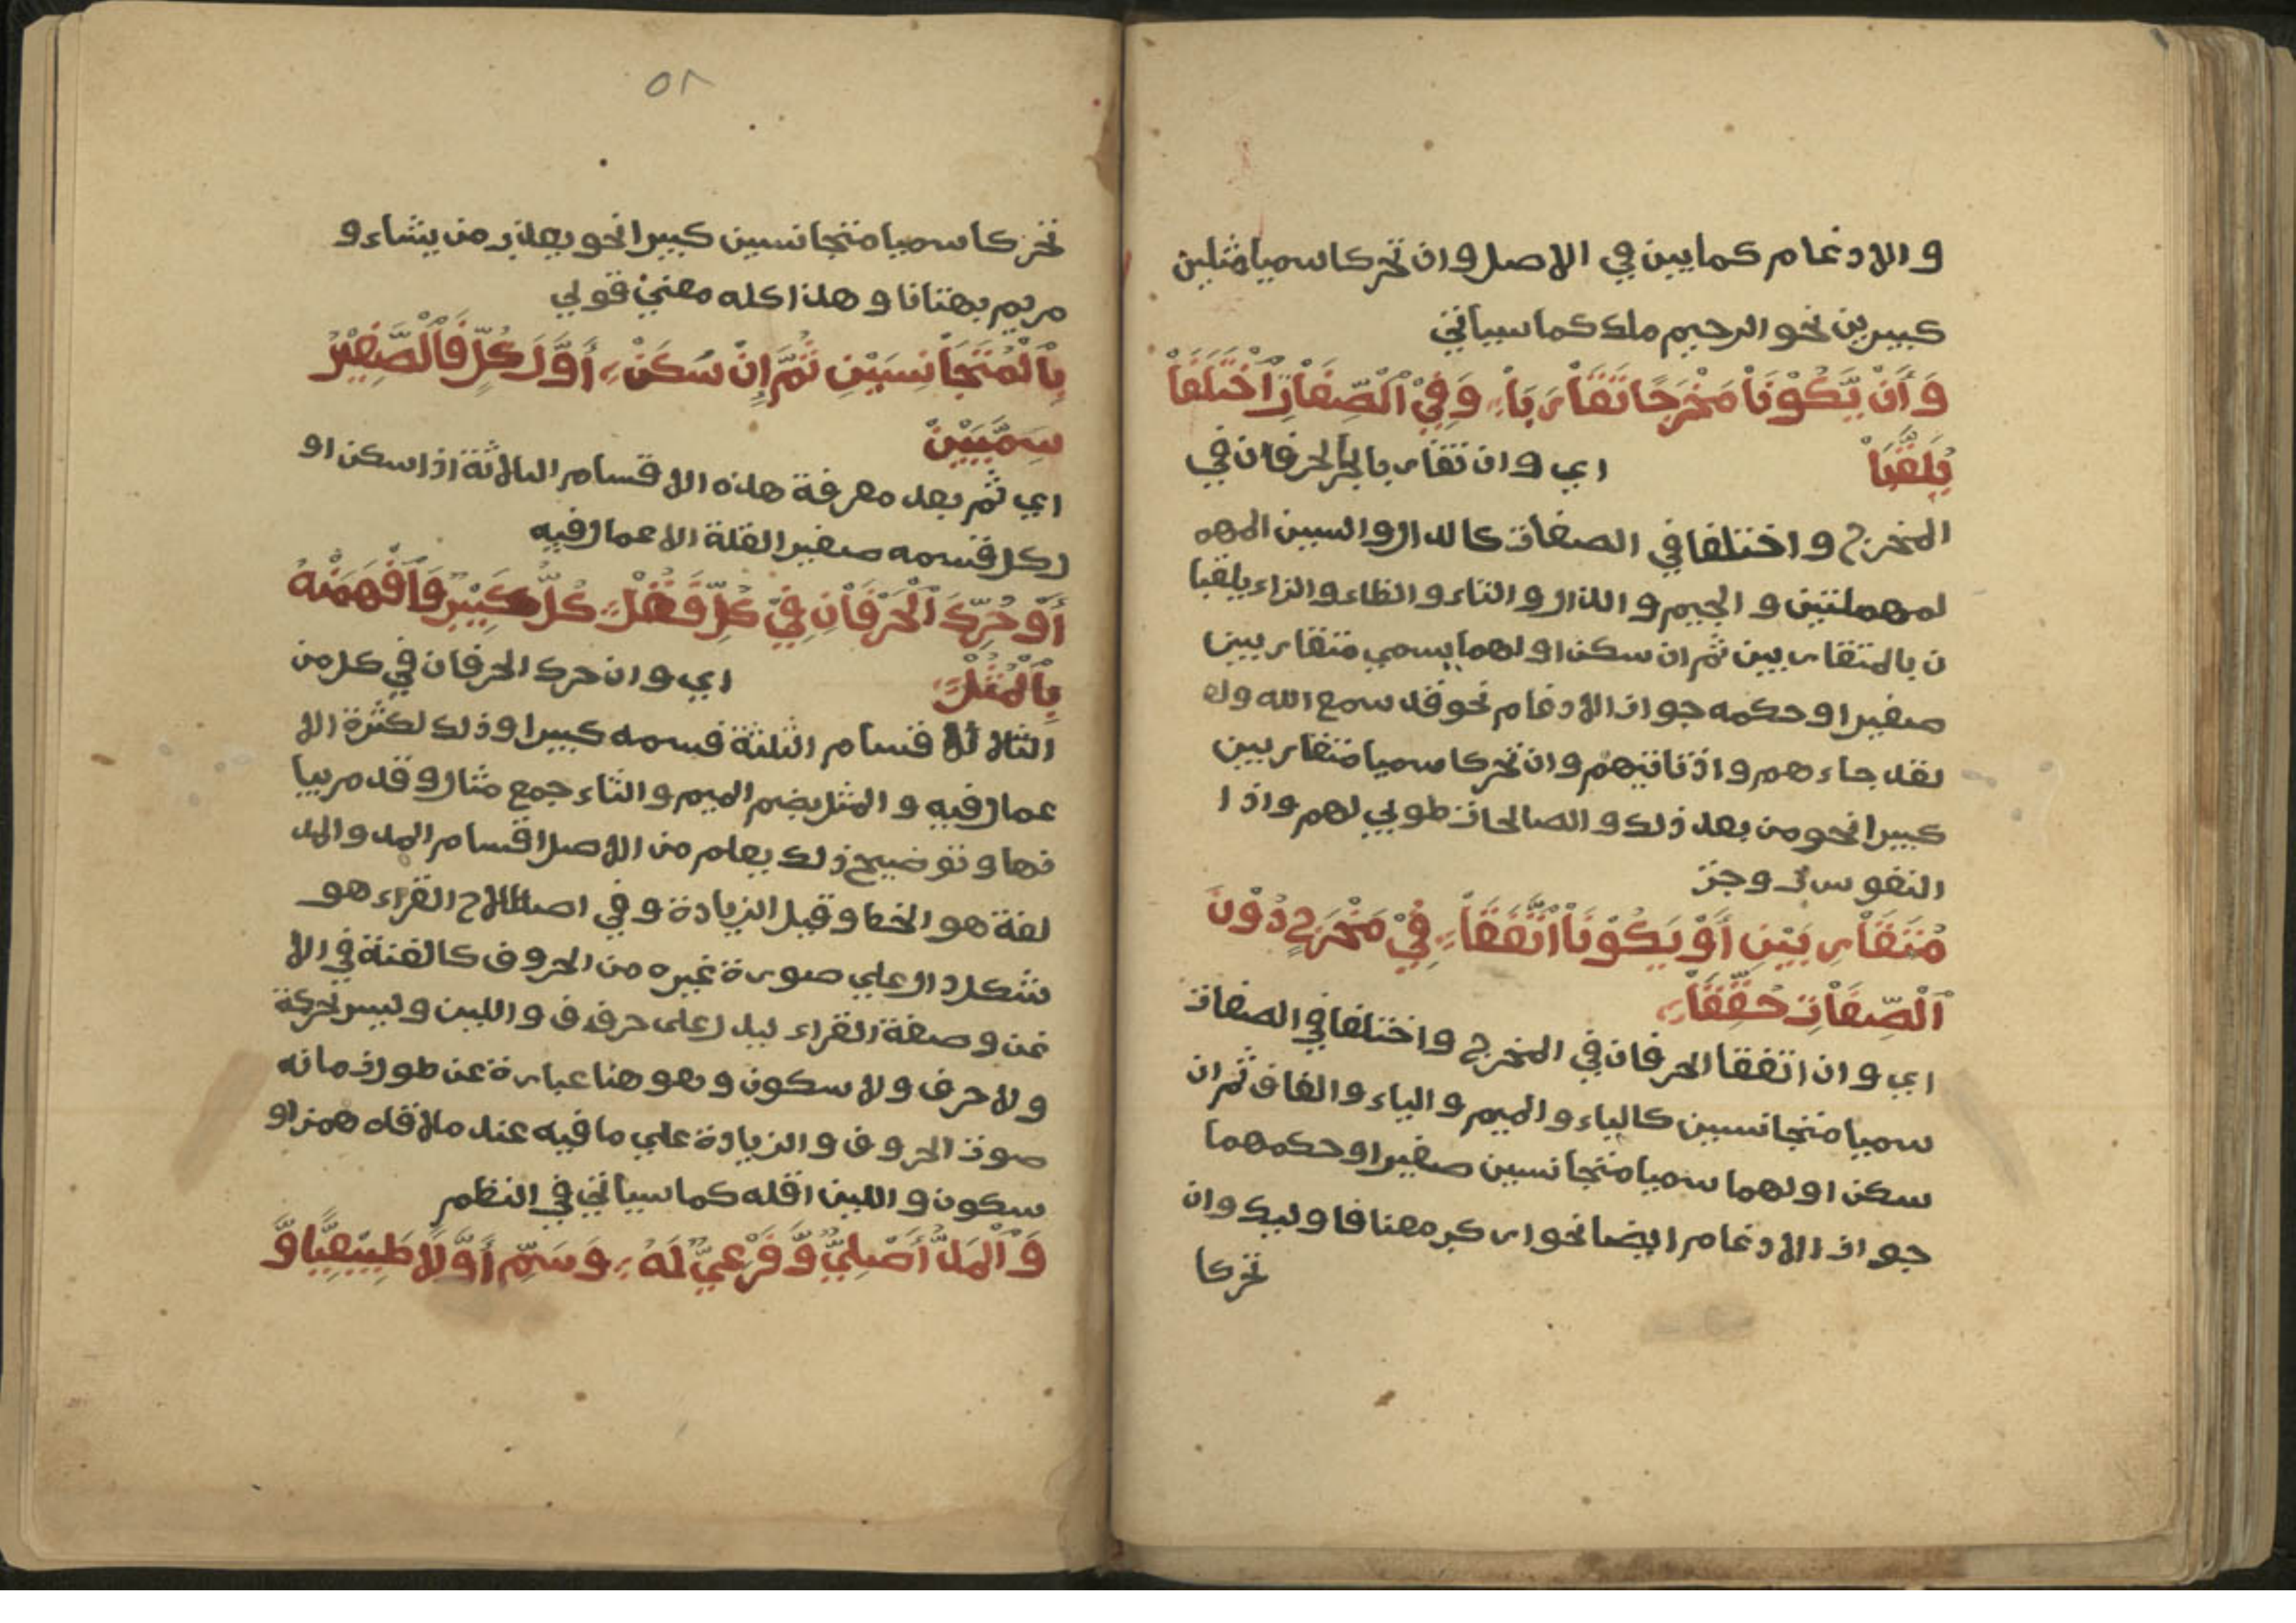 والادغام كما يبين في الاصل وان تحركا سميا مثلين
كبيرين نحو الرحيم ملك كما سياتي
وَأَنْ يَّكُوْنَاْ مَخْرَجًا تَقَاْرَبَاْ وَفِيْ اْلصِّفَاْتِ اْخْتَلَفَاْ
يُلَقَّبَاْ اي وان تقاربا الحرفان في
المخرج واختلفا في الصفات كالدال والسين المهم
لمهملتين والجيم والذال والثاء والظاء والزاء يلقبا
ن بالمتقاربين ثم ان سكن اولهما يسمي متقاربين
صغيرا وحكمه جواز الادغام نحو قد سمع الله ول
لقد جاءهم واذ تاتيهم وان تحركا سميا متقاربين
كبيرا نحو من بعد ذلك والصالحات طوبي لهم واذا
النفوس زوجت
مُتَقَاْرِبَيْنِ أَوْ يَكُوْنَاْ اْتَّفَقَاْ فِيْ مَخْرَجٍ دُوْنَ
اْلْصِّفَاْتِ حُقِّقَاْ
اي وان اتفقا الحرفان في المخرج واختلفا في الصفات
سميا متجانسين كالباء والميم والباء والفاف ثم ان
سكن اولهما سميا متجانسين صغيرا وحكمهما
جواز الادغام ايضا نحو اركب معنا فاوليك وان
تحركا
٥٨
تحركا سميا متجانسين كبيرا نحو يعذب من يشاء و
مريم بهتانا وهذا كله معني قولي
بِاْلْمُتَجَاْنِسَيْنِ ثُمَّ إِنْ سَكَنْ أَوَّلُ كُلٍّ فَاْلْصَّغِيْرُ
سَمِّيَيْنْ
اي ثم بعد معرفة هذه الاقسام الثلاثة اذا سكن او
ل كل قسمه صغير القلة الاعمال فيه
أَوْ حُرِّكَ اْلْحَرْفَاْنِ فِيْ كُلٍّ فَقُلْ كُلٌّ كَبِيْرٌ وَاْفْهَمَنْهُ
بِاْلْمُثُلْ اي وان حرك الحرفان في كل من
الثلا قسام الثلثة فسمه كبيرا وذلك لكثرة الا
عمال فيه والمثل بضم الميم والثاء جمع مثال وقد مر بيا
نها وتوضيح ذلك يعلم من الاصل اقسام المد والمد
لغة هو الخط وقيل الزيادة وفي اصطلاح القراء هو
شكل دال علي صورة غيره من الحروف كالغنة في الا
غن وصفة القراء ليدل على حرف ف واللين وليس حركة
ولا حرف ولا سكون وهو هنا عبارة عن طول زمانه
صوت الحروف والزيادة علي ما فيه عند ملاقاه همز او
سكون واللين اقله كما سياتي في النظم
وَاْلْمَدُّ أَصْلِيٌّ وَّفَرْعِيٌّ لَهُ وَسَمِّ أَوَّلًا طَبِيْعِيًّا وَّ